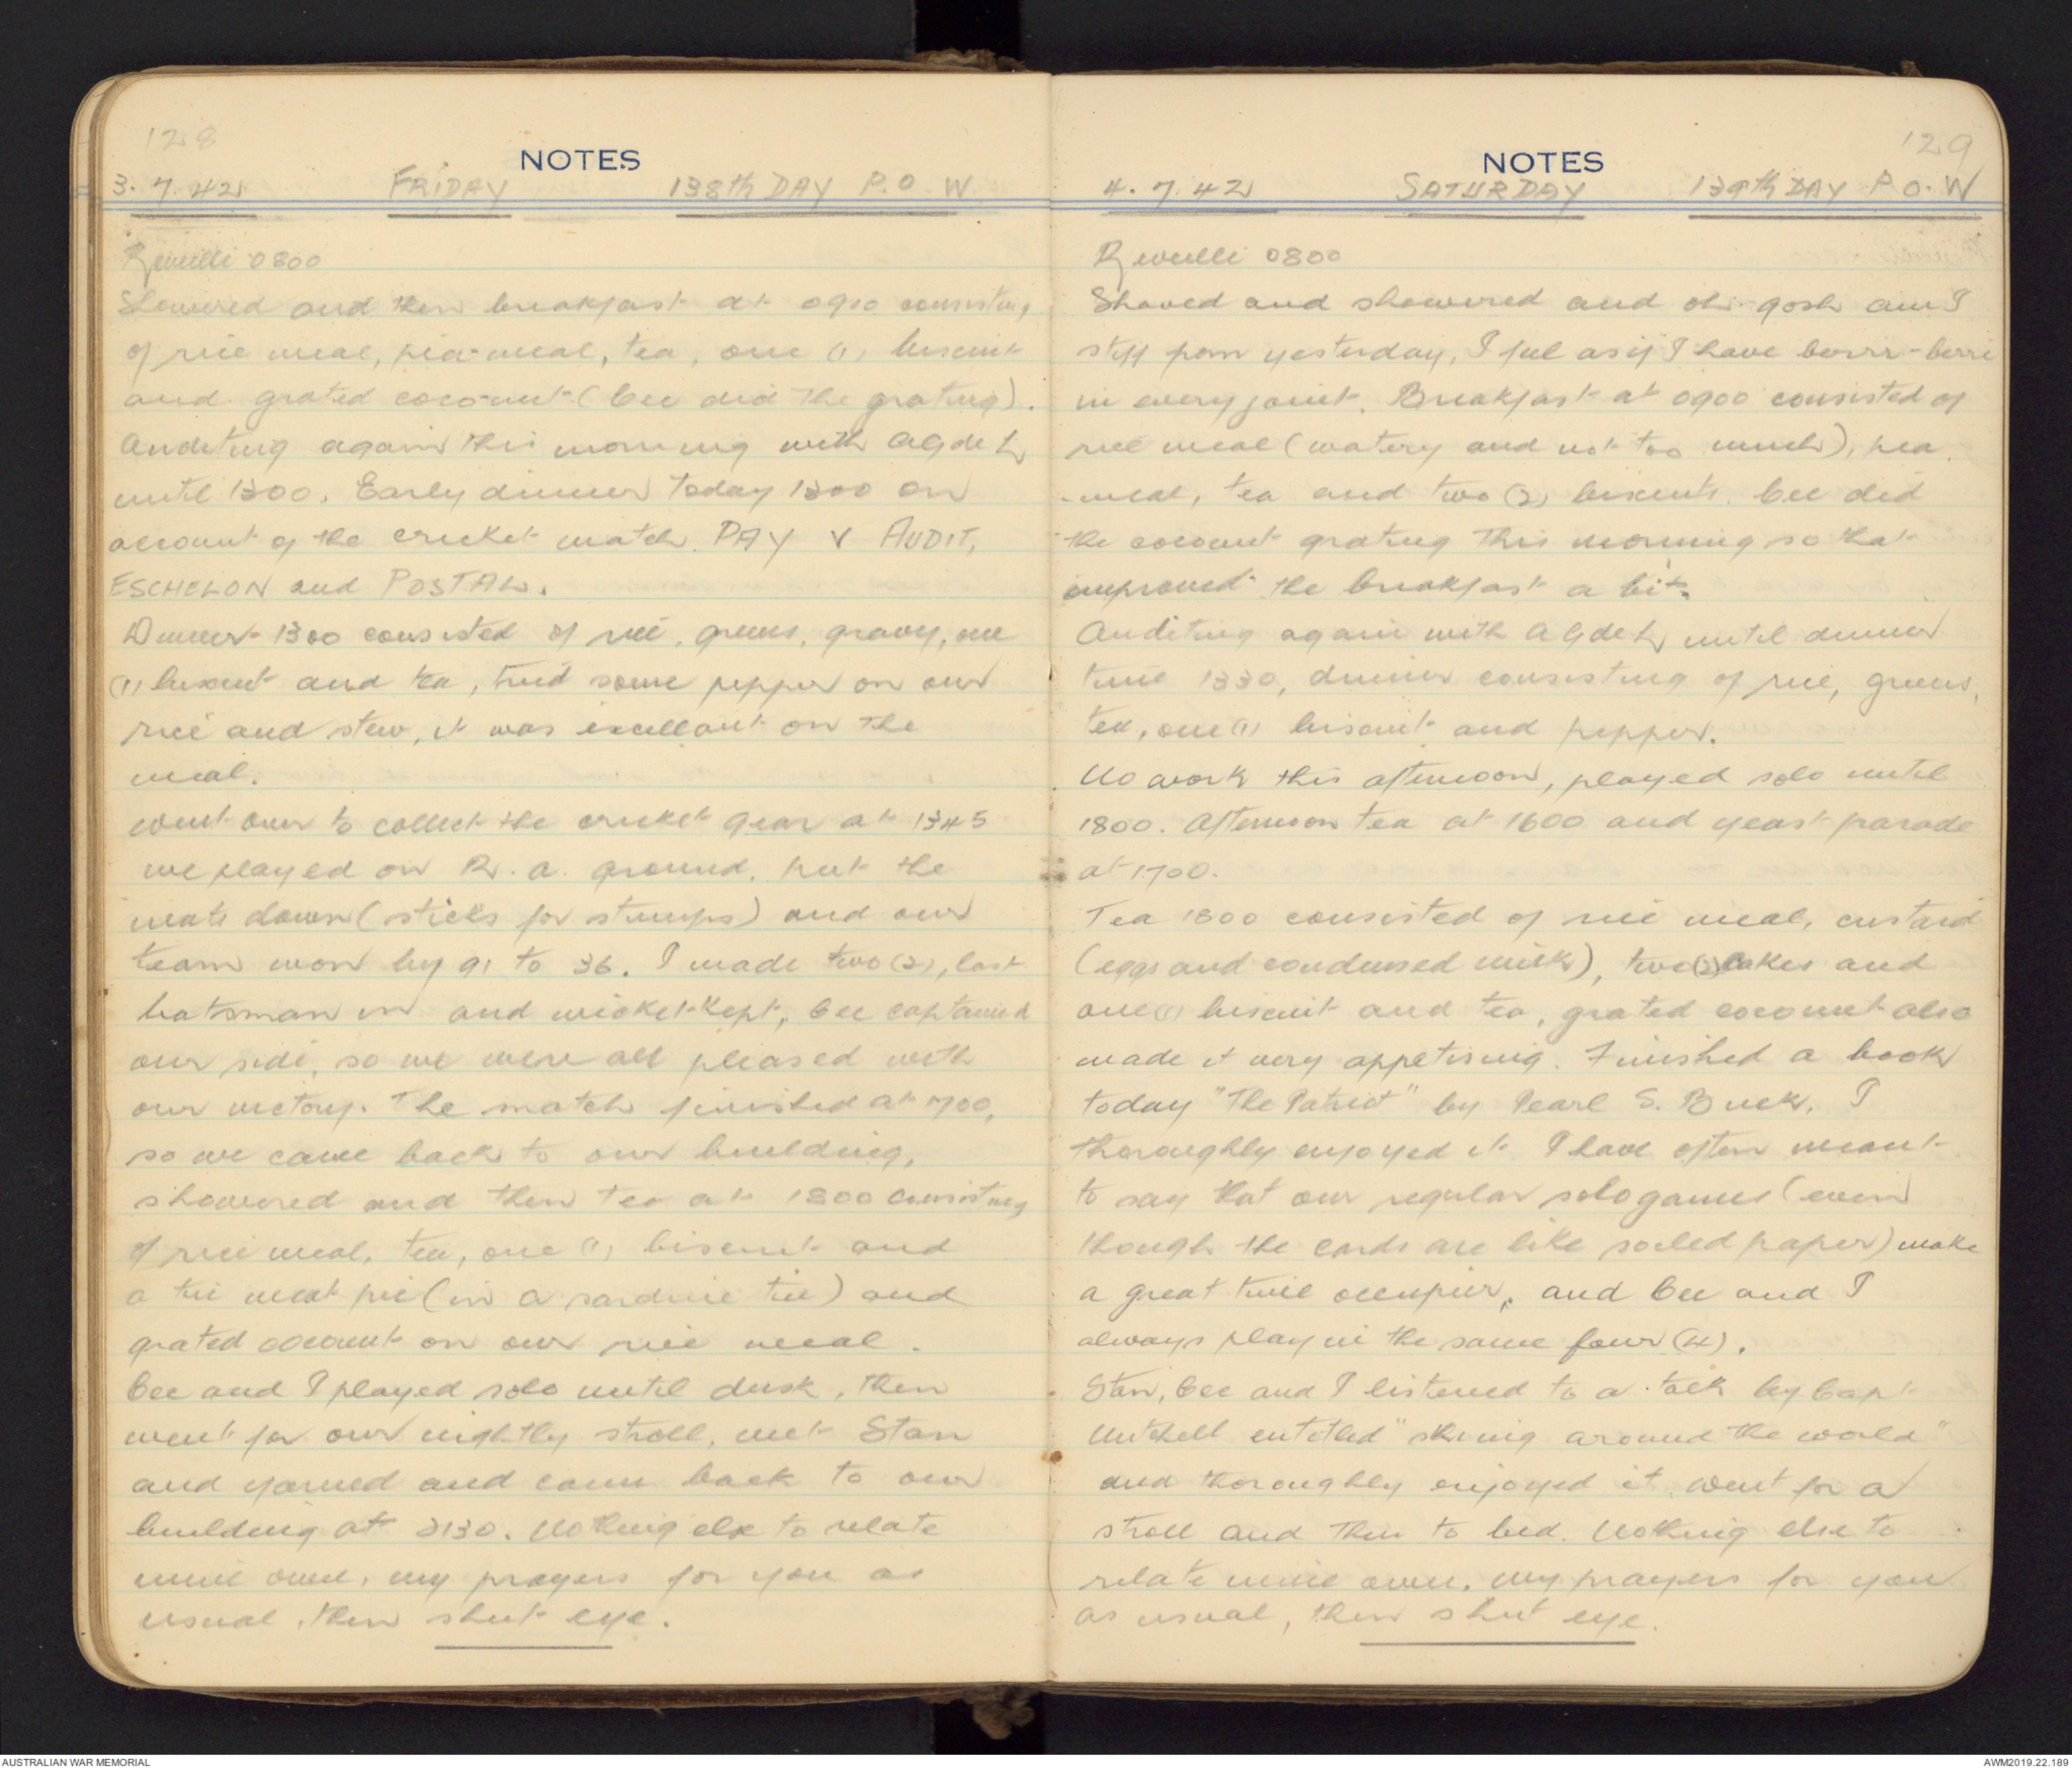 128
NOTES
3.7.42 FRIDAY 138th DAY P.O.W.
Reveilli 0800
Showered and then breakfast at 0900 consisting
of rice meal, pea-meal, tea, one (1) biscuit
and grated coco-nut (Cec did the grating).
Auditing again this morning with AGdeL
until 1300. Early dinner today 1300 on
account of the cricket match. PAY V AUDIT,
ESCHELON and POSTAL.
Dinner 1300 consisted of rice, greens, gravy, one
(1) biscuit and tea, tried some pepper on our
rice and stew, it was excellant on the
meal.
Went over to collect the cricket gear at 1345
we played on R.A. ground, put the
mats down (sticks for stumps) and our
team won by 91 to 36. I made two (2), last
batsman in and wicket-kept, Cec captained
our side, so we were all pleased with
our victory. The match finished at 1700,
so we came back to our building,
showered and then tea at 1800 consisting
of rice meal, tea, one (1) biscuit and
a tin meat pie (in a sardine tin) and
grated coconut on our rice meal.
Cec and I played solo until dusk, then
went for our nightly stroll, met Stan
and yarned and came back to our
building at 2130. Nothing else to relate
mine own, my prayers for you as
usual, then shut eye.
129
NOTES
4.7.42 SATURDAY 139th DAY P.O.W
Reveilli 0800
Shaved and showered and oh gosh am I
stiff from yesterday, I feel as if I have berri-berri
in every joint. Breakfast at 0900 consisted of
rice meal (watery and not too much), pea
-meal, tea and two (2) biscuits. Cec did
the coconut grating this morning so that
improved the breakfast a bit.
Auditing again with AGdeL until dinner
time 1330, dinner consisting of rice, greens,
tea, one (1) biscuit and pepper.
No work this afternoon, played solo until
1800. Afternoon tea at 1600 and yeast parade
at 1700.
Tea 1800 consisted of rice meal, custard
(eggs and condensed milk), two (2) cakes and
one (1) biscuit and tea, grated coconut also
made it very appetising. Finished a book
today "The Patriot" by Pearl S. Buck, I
thoroughly enjoyed it. I have often meant
to say that our regular solo games (even
though the cards are like soiled paper) make
a great time occupier, and Cec and I
always play in the same four (4).
Stan, Cec and I listened to a talk by Capt
Mitchell entitled "skiing around the world"
and thoroughly enjoyed it, went for a
stroll and then to bed. Nothing else to
relate mine own, my prayers for you
as usual, then shut eye.
AUSTRALIAN WAR MEMORIAL
AWM2019.22.189